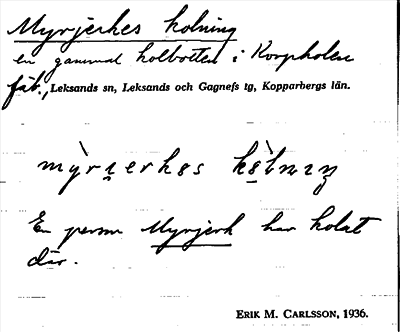 Myrjerkes kolning
en gammal kolbotten i Korpholen
fäb., Leksands sn, Leksands och Gagnefs tg, Kopparbergs län.
mỳrɪerkes kòlnɪŋ
En person Myrjerk har kolat
där.
ERIK M. CARLSSON, 1936.